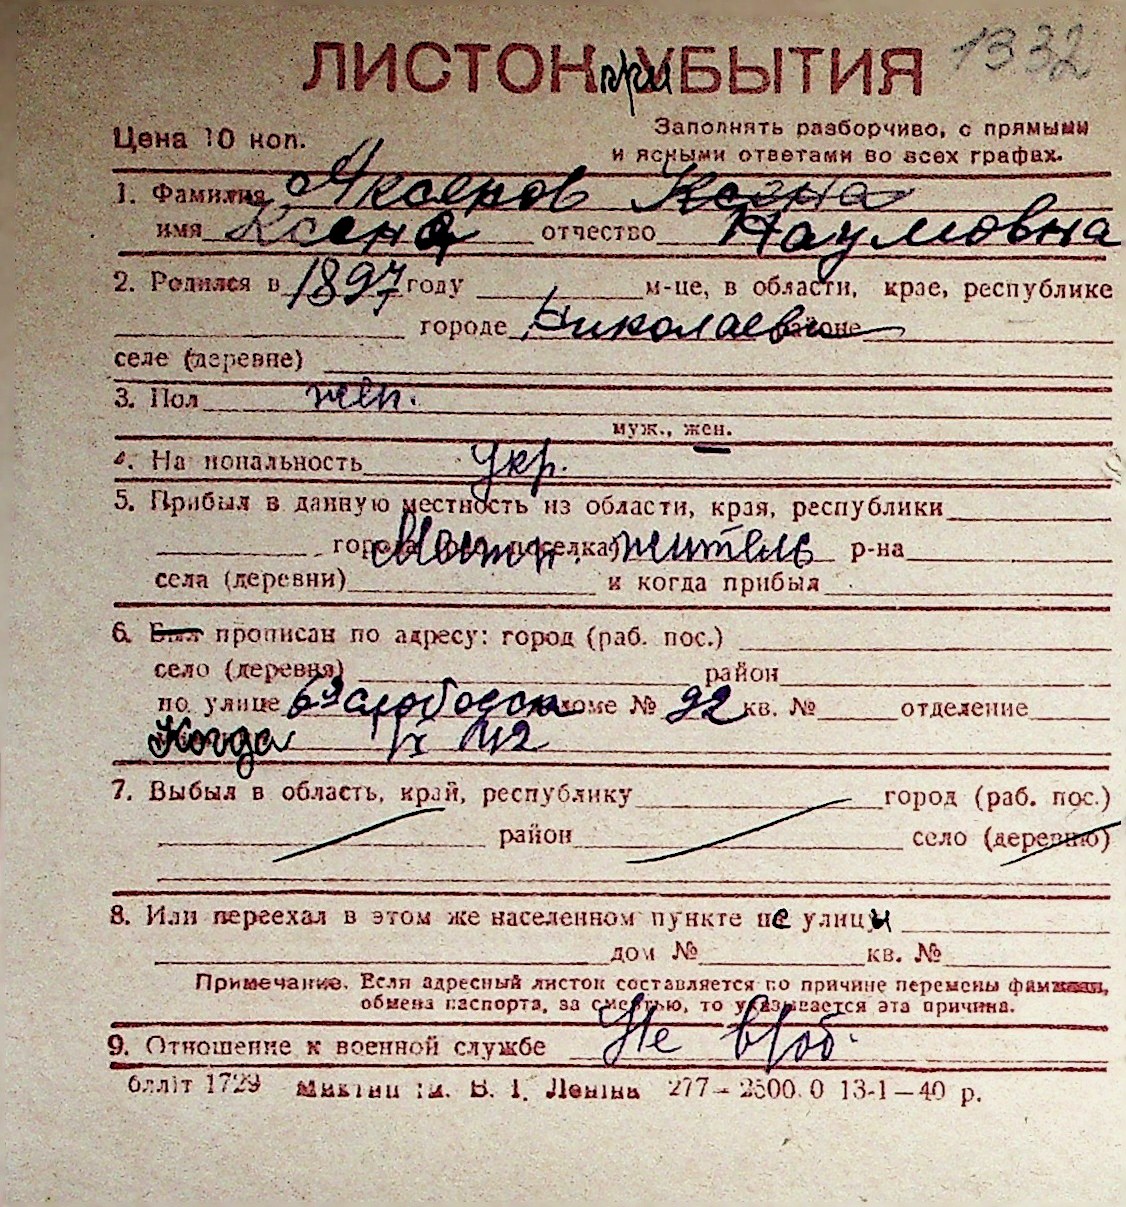 1332
ЛИСТОК при УБЫТИЯ
Цена 10 коп.
Заполнять разборчиво, с прямыми
и ясными ответами во всех графах.
1. Фамилия Аксенов Ксена
имя Ксена отчество Наумовна
2. Родился в 1897 году м-це, в области, крае, республике
городе Николаеве районе
селе (деревне)
3. Пол жен.
муж., жен.
4. Национальность Укр.
5. Прибыл в данную местность из области, края, республики
города поселка) Местн. житель р-на
села (деревни) и когда прибыл
6. Был прописан по адресу: город (раб. пос.)
село (деревня) район
по улице 6я слободск доме № 92 кв. № отделение
Когда 42
7. Выбыл в область, край, республику город (раб. пос.)
район село (деревню)
8. Или переехал в этом же населенном пункте не улицы
дом № кв. №
Примечание. Если адресный листок составляется по причине перемены фамилии,
обмена паспорта, за смертью, то указывается эта причина.
9. Отношение к военной службе Не в/об.
1729 ім. В. І. Леніна 277—2500.0 13-1—40 р.